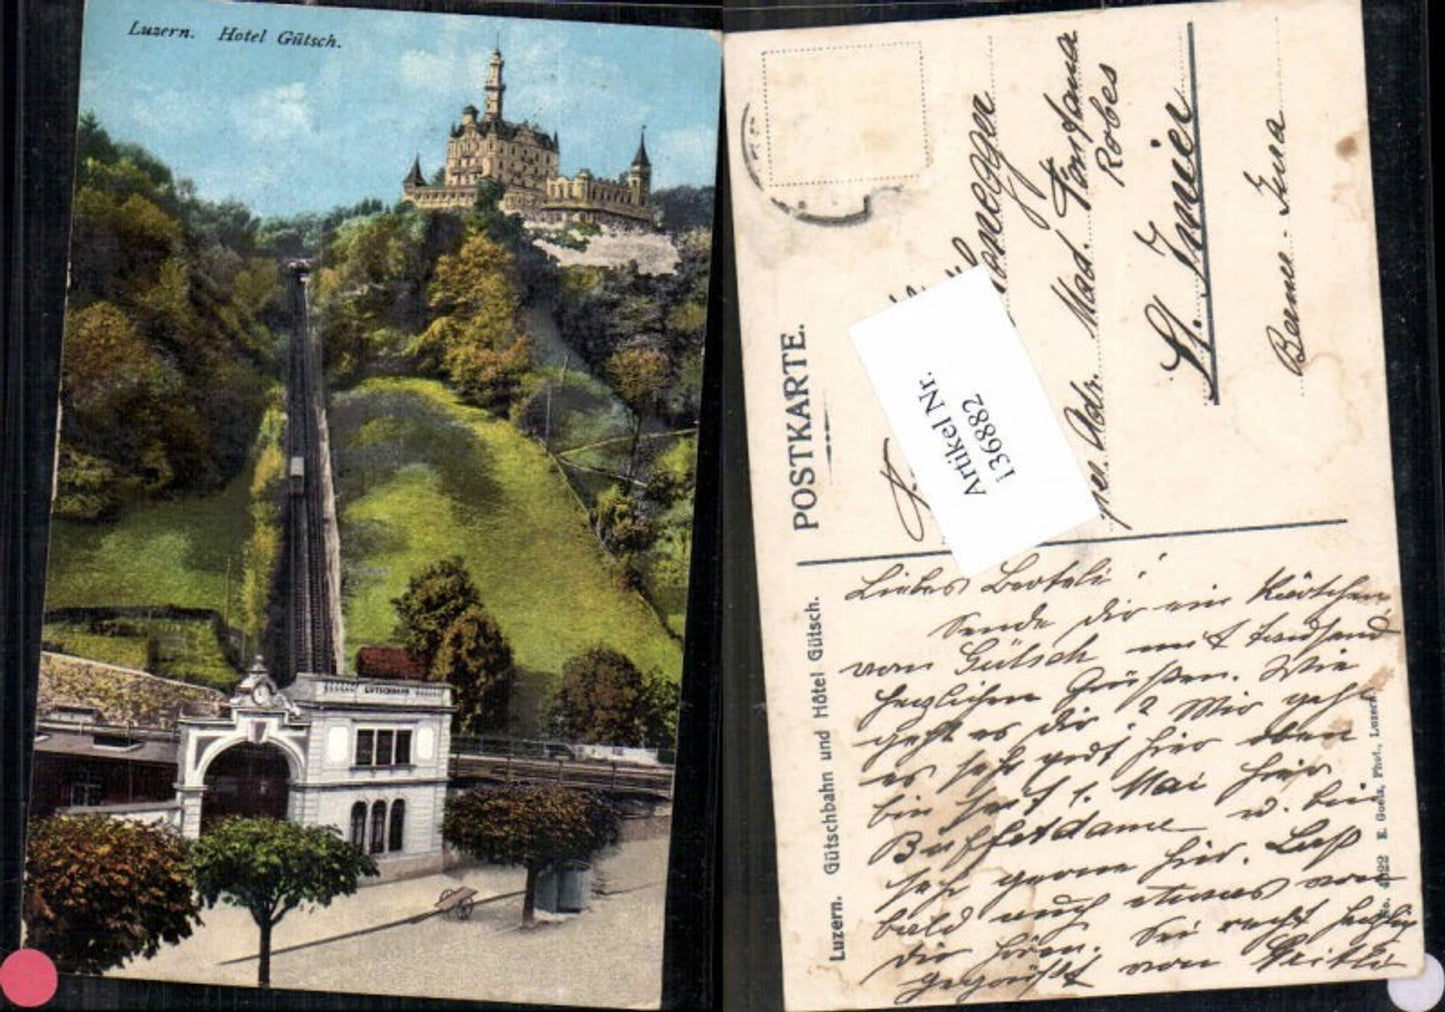 Luzern. Hotel Gütsch.
GÜTSCHBAHN
POSTKARTE.
Artikel Nr.
136882
Honegger
Adr. Mad. Fontana
Robes
St. Imier
Berner-Jura
Luzern. Gütschbahn und Hôtel Gütsch.
Liebes Berteli!
Sende dir ein Kärtchen
vom Gütsch mit tausend
herzlichen Grüßen. Wie
geht es dir? Mir geht
es sehr gut hier oben
bin seit 1. Mai hier
Buffetdame u. bin
sehr gerne hier. Laß
bald auch etwas von
dir hören. Sei recht herzlich
gegrüßt von
E. Goetz, Phot., Luzern.